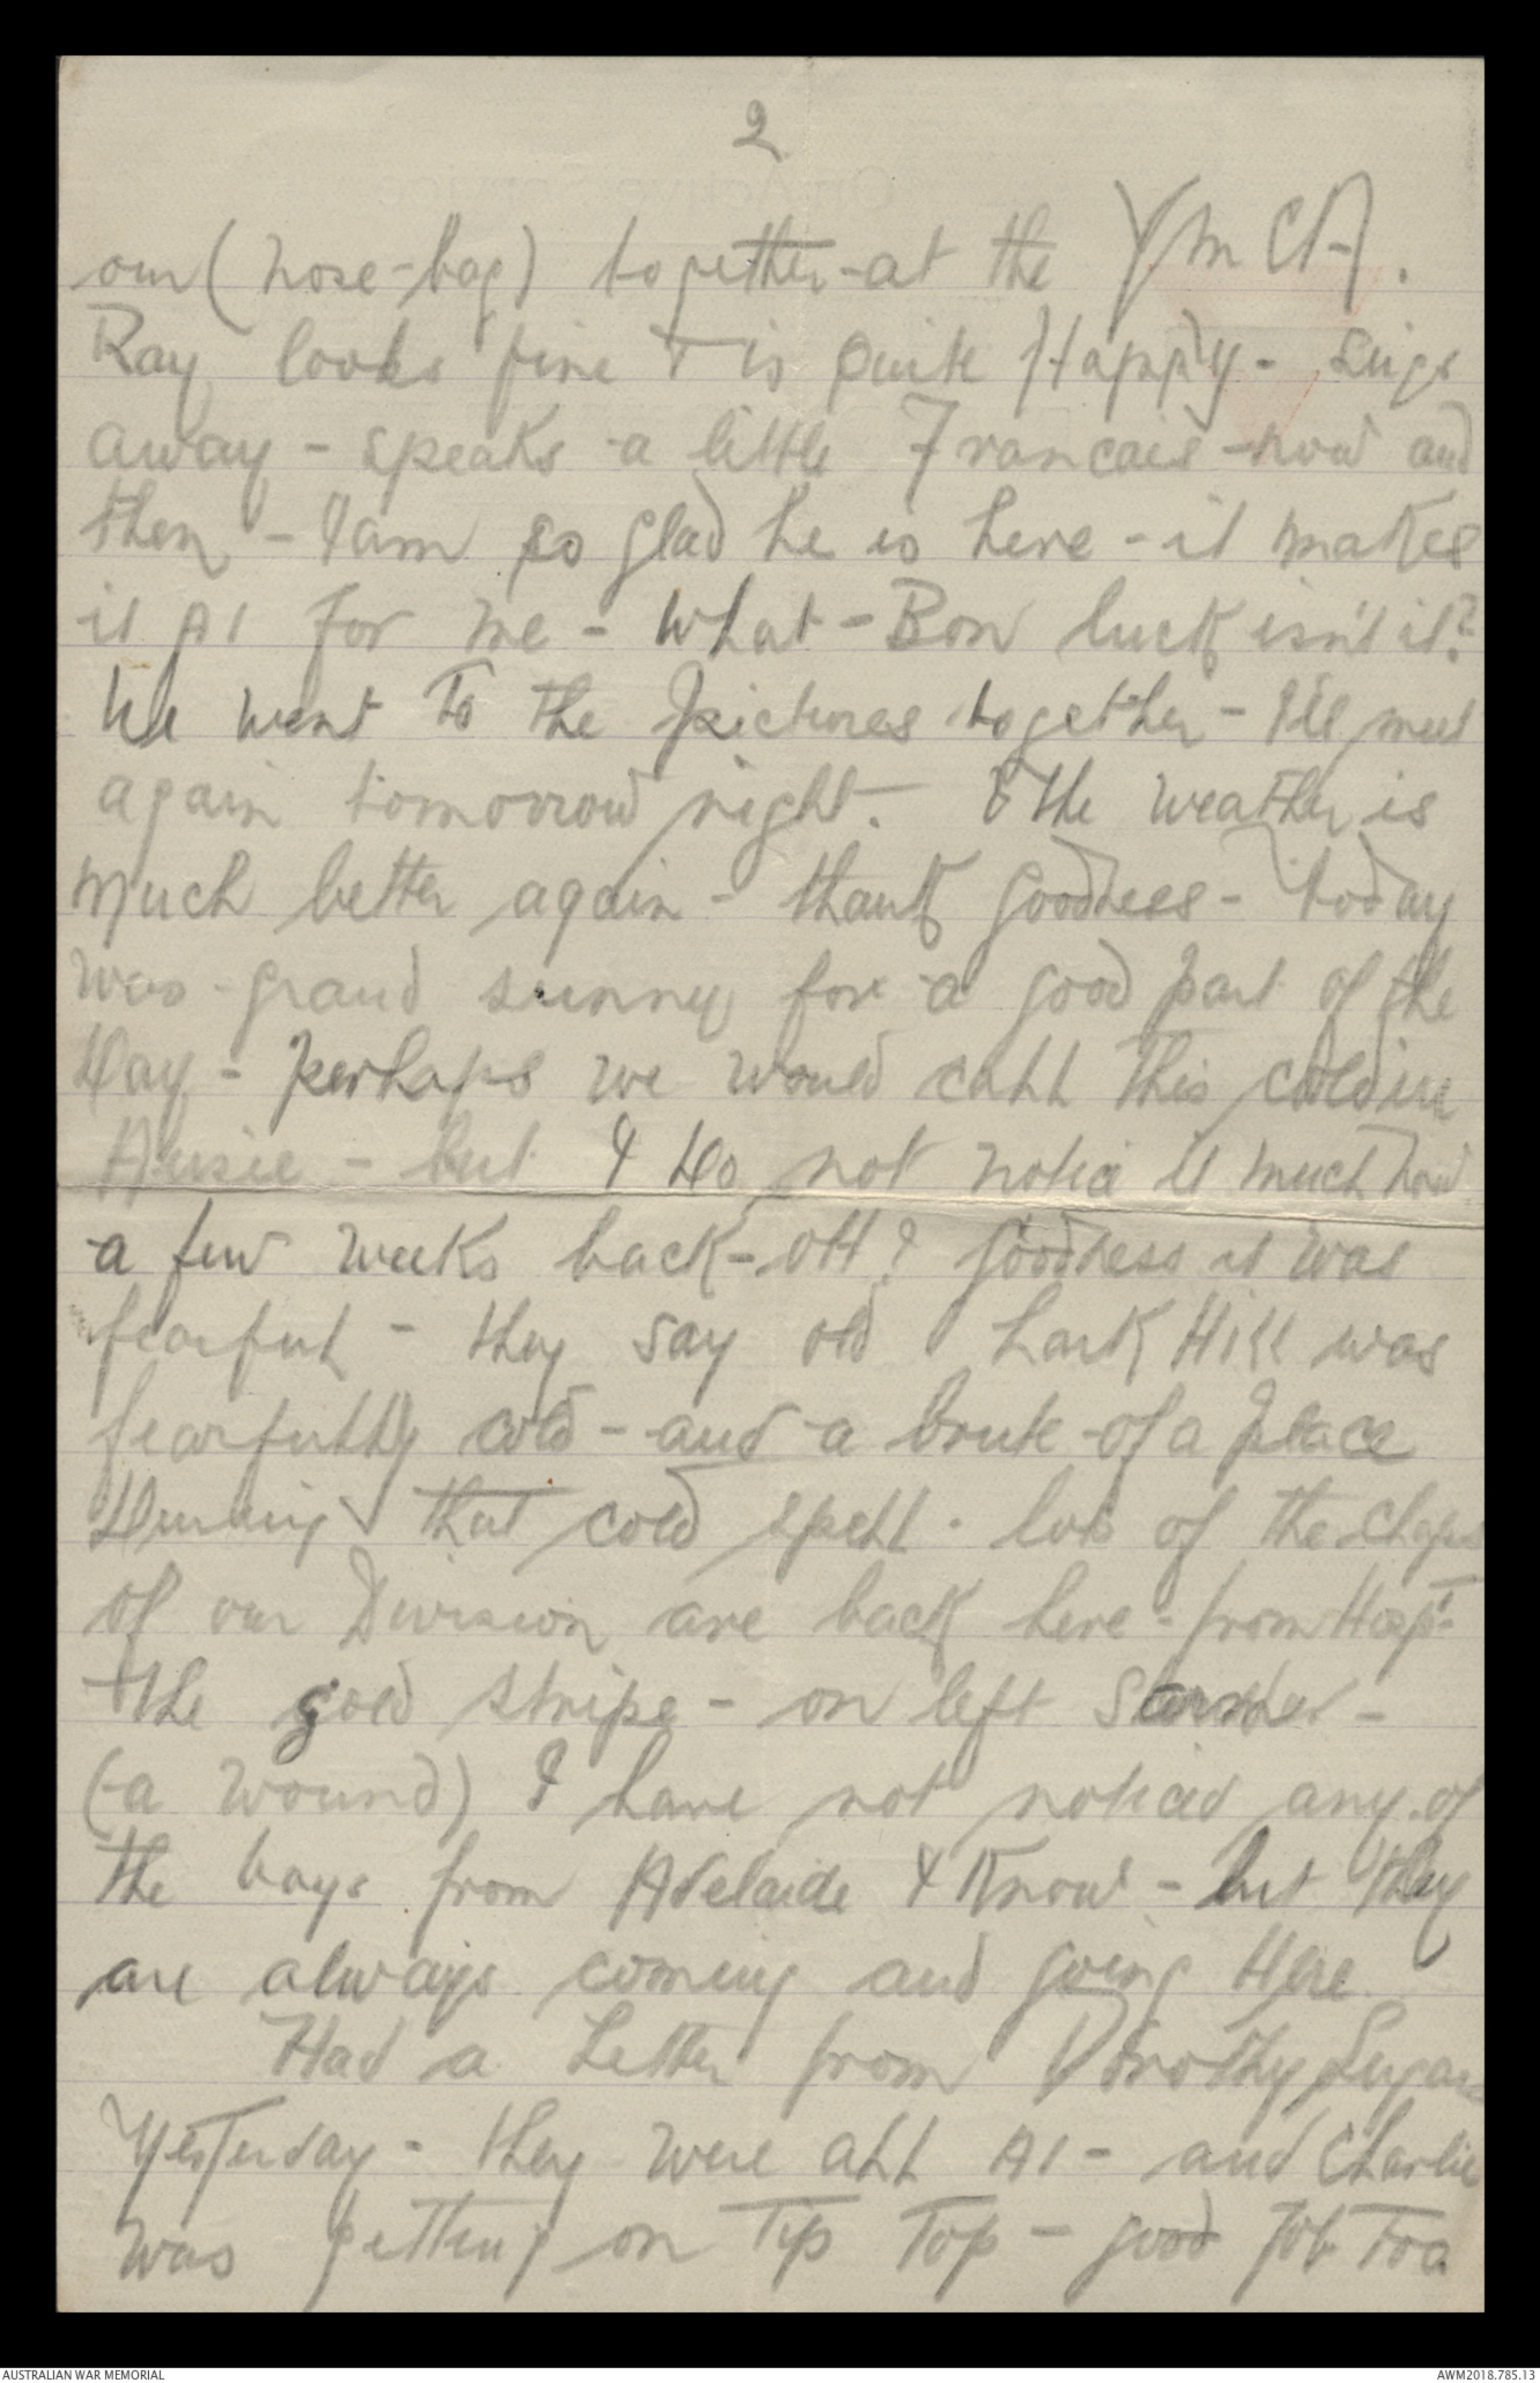 2
our (nose-bag) together - at the YMCA.
Ray looks fine & is quite Happy - sings
away - speaks a little Francais - now and
then - I am so glad he is here - it makes
it A1 for me - what - Bon luck isn't it?
We went To the pictures together - I'll meet
again tomorrow night. The weather is
much better again - thank goodness - today
was grand sunny for a good part of the
day - perhaps we would call this cold in
Aussie - but I do not notice it much now
a few weeks back - oh! goodness it was
fearful - they say old Lark Hill was
fearfully cold - and a brute of a place
during that cold spell. lots of the chaps
of our Division are back here - from Hosp.
The gold stripe - on left
(a wound) I have not noticed any of
the boys from Adelaide I know - but they
are always coming and going Here.
Had a Letter from Dorothy
Yesterday - they were all A1 - and Charlie
was getting on Tip Top - good job Too
AUSTRALIAN WAR MEMORIAL
AWM2018.785.13